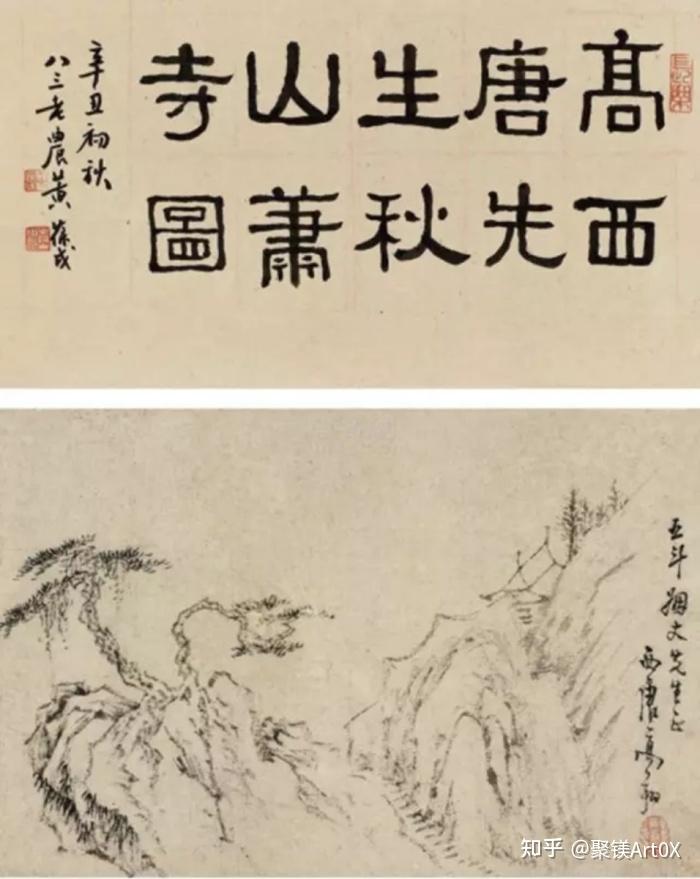 高西
唐先
生秋
山蕭
寺圖
辛丑初秋
八三老農黃葆戉
五斗姻丈先生正
西唐高翔
知乎 @聚镁Art0X